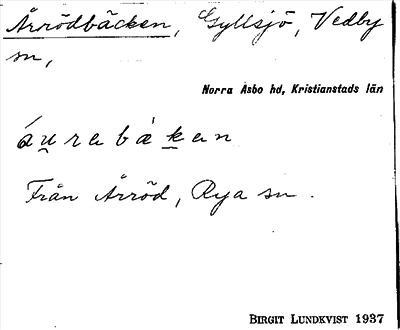 Årrödbäcken, Gyllsjö, Vedby
sn,
Norra Åsbo hd, Kristianstads län
áu̯rabàkan
Från Årröd, Rya sn.
BIRGIT LUNDKVIST 1937